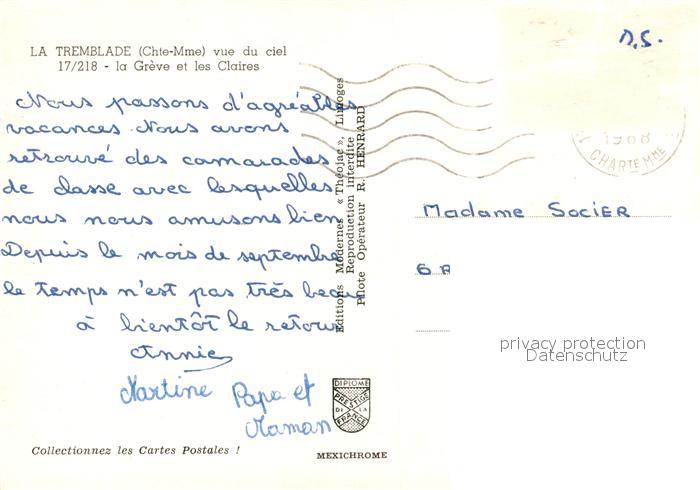 LA TREMBLADE (Chte-Mme) vue du ciel
17/218 - la Grève et les Claires
Nous passons d'agréables
vacances Nous avons
retrouvé des camarades
de classe avec lesquelles
nous nous amusons bien
Depuis le mois de septembre
le temps n'est pas très beau
à bientôt le retour
Annie
Martine Papa et
Maman
Collectionnez les Cartes Postales !
Editions Modernes « Théojac », Limoges
Reproduction interdite
Pilote Opérateur R. HENRARD
DIPLOME
PRESTIGE
DE LA
FRANCE
MEXICHROME
D.S.
1968
CHARTE MME
Madame SOCIER
6 R
privacy protection
Datenschutz